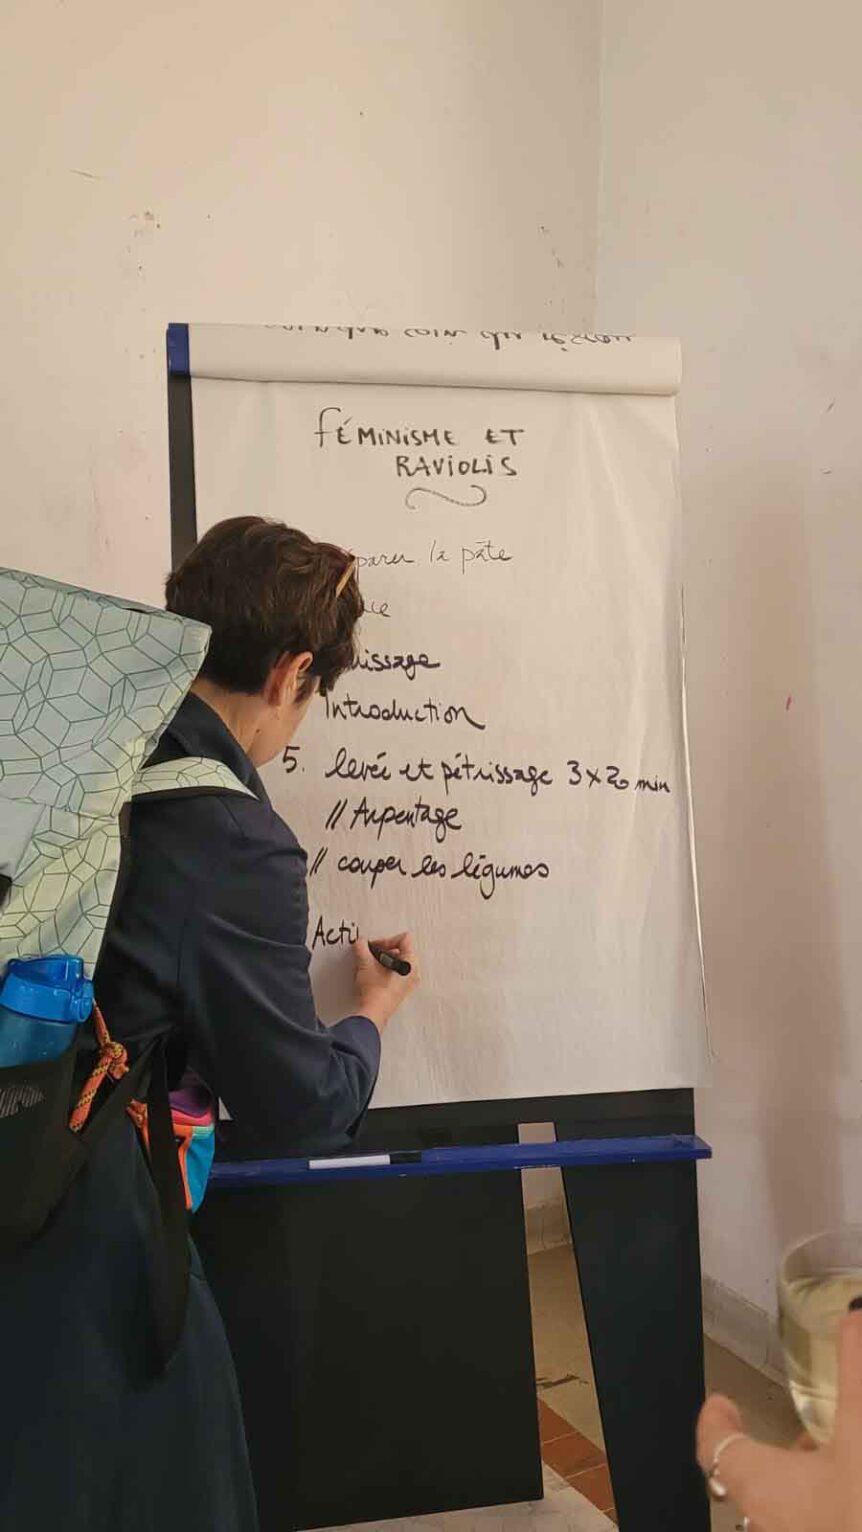 FÉMINISME ET
RAVIOLIS
la pâte
Introduction
5. levée et pétrissage 3 x 20 min
// Arpentage
// couper les légumes
Acti